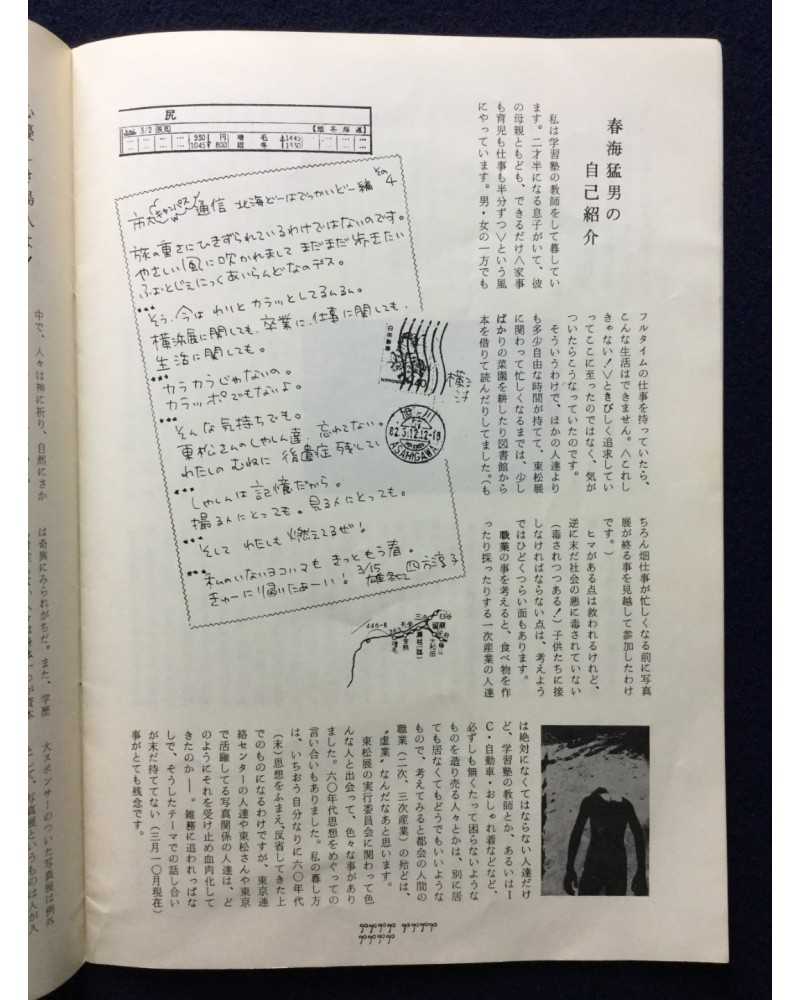 春海猛男の
自己紹介
私は学習塾の教師をして暮してい
ます。二才半になる息子がいて、彼
の母親ともども、できるだけ〈家事
も育児も仕事も半分ずつ〉という風
にやっています。男・女の一方でも
フルタイムの仕事を持っていたら、
こんな生活はできません。〈これし
きゃない！〉ときびしく追求してい
ってここに至ったのではなく、気が
ついたらこうなっていたのです。
そういうわけで、ほかの人達より
も多少自由な時間が持てて、東松展
に関わって忙しくなるまでは、少し
ばかりの菜園を耕したり図書館から
本を借りて読んだりしてました。（も
ちろん畑仕事が忙しくなる前に写真
展が終る事を見越して参加したわけ
です。）
ヒマがある点は救われるけれど、
逆に未だ社会の悪に毒されていない
（毒されつつある！）子供たちに接
しなければならない点は、考えよう
ではひどくつらい面もあります。
職業の事を考えると、食べ物を作
ったり採ったりする一次産業の人達
は絶対になくてはならない人達だけ
ど、学習塾の教師とか、あるいはI
C・自動車・おしゃれ着などなど、
必ずしも無くたって困らないような
ものを造り売る人々とかは、別に居
ても居なくてもどうでもいいような
もので、考えてみると都会の人間の
職業（二次、三次産業）の殆どは、
〝虚業〟なんだなあと思います。
東松展の実行委員会に関わって色
んな人と出会って、色々な事があり
ました。六〇年代思想をめぐっての
言い合いもありました。私の暮し方
は、いちおう自分なりに六〇年代
（末）思想をふまえ、反省してきた上
でのものになるわけですが、東京連
絡センターの人達や東松さんや東京
で活躍してる写真関係の人達は、ど
のようにそれを受け止め血肉化して
きたのか――。雑務に追われっぱな
しで、そうしたテーマでの話し合い
が未だ持ててない（三月一〇月現在）
事がとても残念です。
尻
市大キャンパス通信 北海どーはでっかいどー編 その4
旅の重さにひきずられているわけではないのです。
やさしい風に吹かれまして まだまだ歩きたい
ふぉとじぇにっくあいらんどなのデス。
そう、今は わりと カラッとしてるんるん。
横浜展に関しても、卒業に、仕事に関しても、
生活に関しても。
カラカラじゃないの。
カラッポでもないよ。
そんな気持ちでも。
東松さんのしゃしん達、忘れてない。
わたしの むねに 後遺症 残してい
しゃしんは 記憶だから。
撮る人にとっても。見る人にとっても。
そして わたしも 燃えてるぜ！
私のいないヨコハマも きっと もう 春。
きゅーに帰りたぁーい！ 3/15
日本郵便
旭川
ASAHIGAWA
中で、人々は神に祈り、自然にさか
は奇異にみられがちだ。また、学歴
大スポンサーのついた写真展は例外